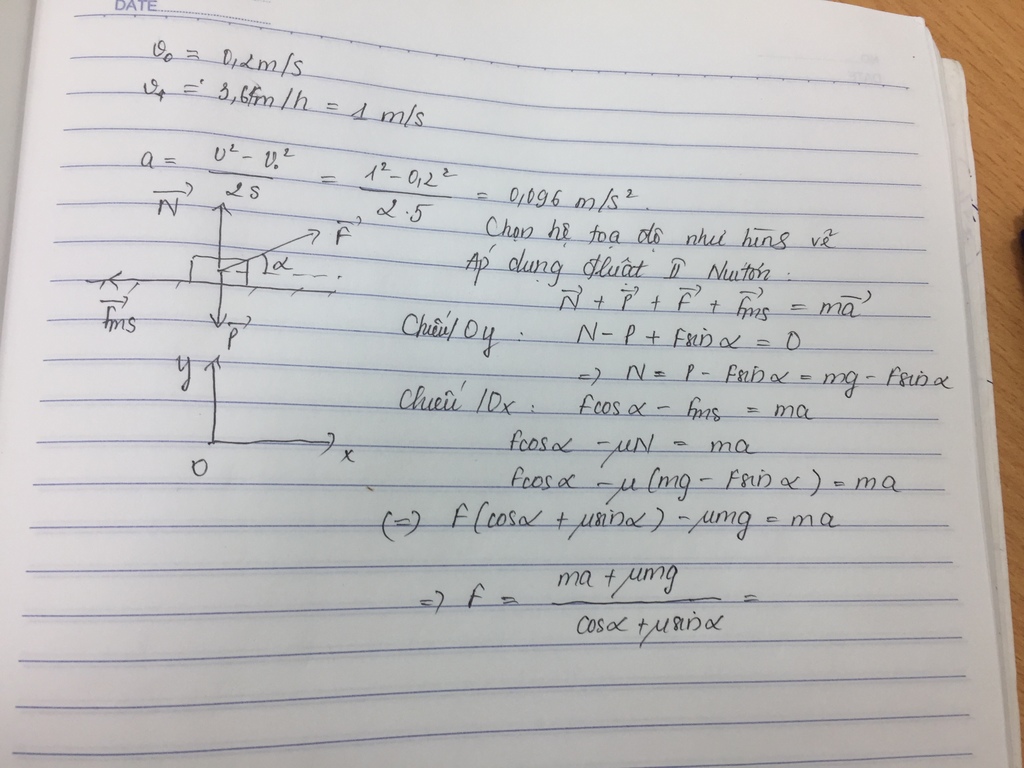 DATE
v₀ = 0,2m/s
v₁ = 3,6km/h = 1 m/s
a = (v² - v₀²)/(2s) = (1² - 0,2²)/(2.5) = 0,096 m/s²
N⃗
F⃗
α
F⃗ms
P⃗
y
O
x
Chọn hệ tọa độ như hình vẽ
Áp dụng định luật II Niutơn :
N⃗ + P⃗ + F⃗ + F⃗ms = ma⃗
Chiếu/Oy : N - P + Fsinα = 0
=> N = P - Fsinα = mg - Fsinα
Chiếu /Ox : Fcosα - Fms = ma
Fcosα - μN = ma
Fcosα - μ(mg - Fsinα) = ma
(=) F(cosα + μsinα) - μmg = ma
=> F = (ma + μmg)/(cosα + μsinα) =